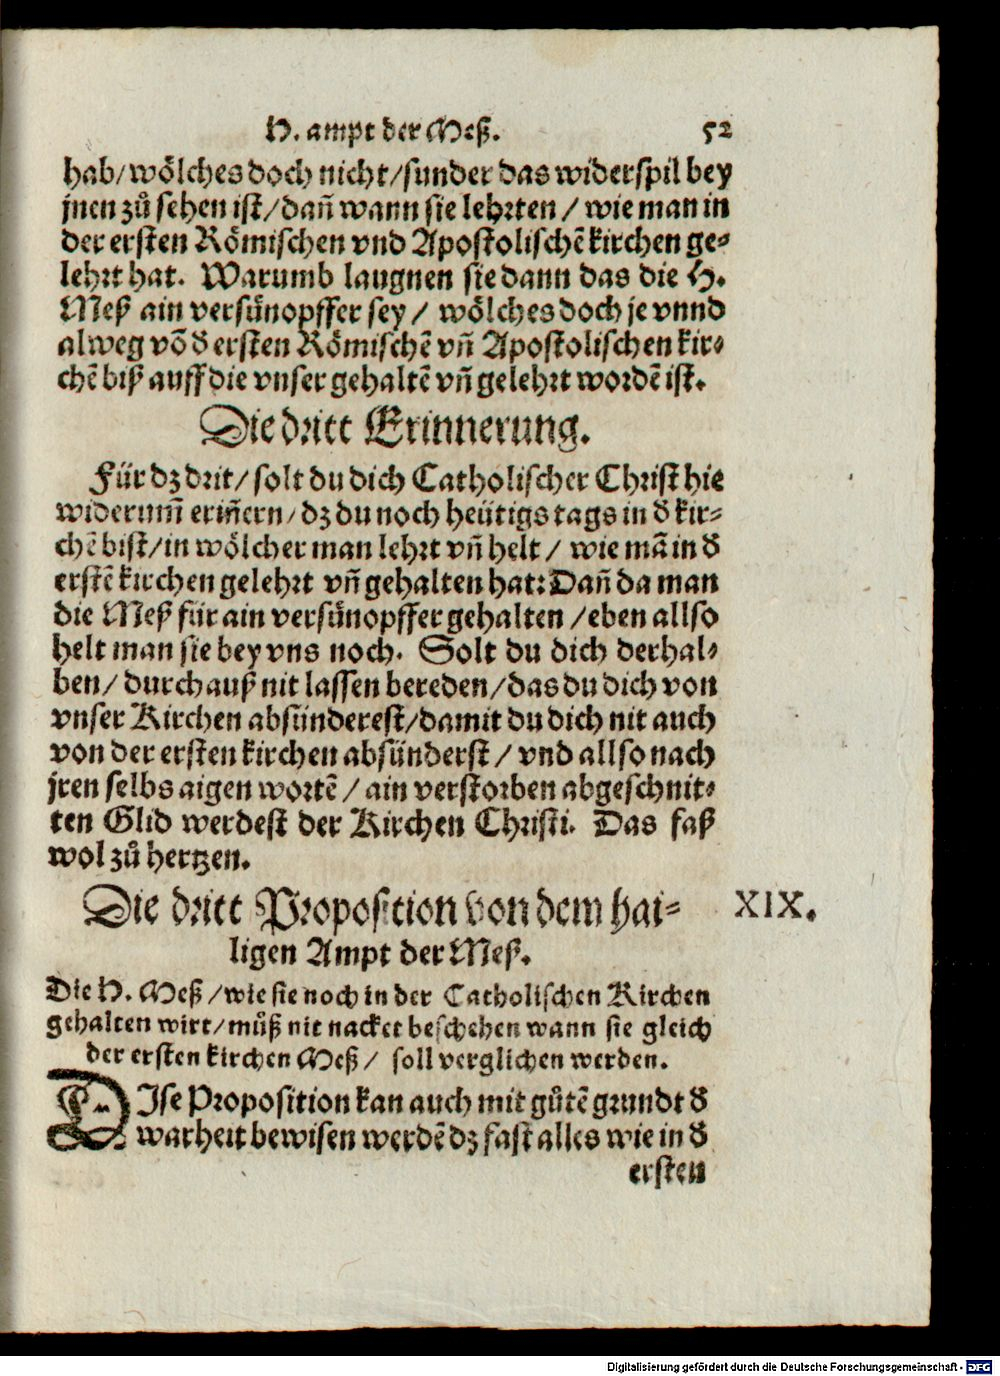 H. ampt der Meß. 52
hab/wölches doch nicht/sunder das widerspil bey
jnen zů sehen ist/dañ wann sie lehrten / wie man in
der ersten Römischen vnd Apostolischẽ kirchen ge⸗
lehrt hat. Warumb laugnen sie dann das die H.
Meß ain versünopffer sey / wölches doch je vnnd
alweg võ d̕ ersten Römischẽ vñ Apostolischen kir⸗
chẽ biß auff die vnser gehaltẽ vñ gelehrt wordẽ ist.
Die dritt Erinnerung.
Für dz drit/ solt du dich Catholischer Christ hie
widerum̃ eriñern/ dz du noch heütigs tags in d̕ kir⸗
chẽ bist/in wölcher man lehrt vñ helt / wie mã in d̕
erstẽ kirchen gelehrt vñ gehalten hat: Dañ da man
die Meß für ain versünopffer gehalten /eben allso
helt man sie bey vns noch. Solt du dich derhal⸗
ben/ durchauß nit lassen bereden/das du dich von
vnser Kirchen absünderest/damit du dich nit auch
von der ersten kirchen absünderst / vnd allso nach
jren selbs aigen wortẽ / ain verstorben abgeschnit⸗
ten Glid werdest der Kirchen Christi. Das faß
wol zů hertzen.
Die dritt Proposition von dem hai⸗ XIX.
ligen Ampt der Meß.
Die H. Meß /wie sie noch in der Catholischen Kirchen
gehalten wirt/můß nit nacket beschehen wann sie gleich
der ersten kirchen Meß / soll verglichen werden.
DIse Proposition kan auch mit gůtẽ grundt d̕
warheit bewisen werdẽ dz fast alles wie in d̕
ersten
Digitalisierung gefördert durch die Deutsche Forschungsgemeinschaft - DFG